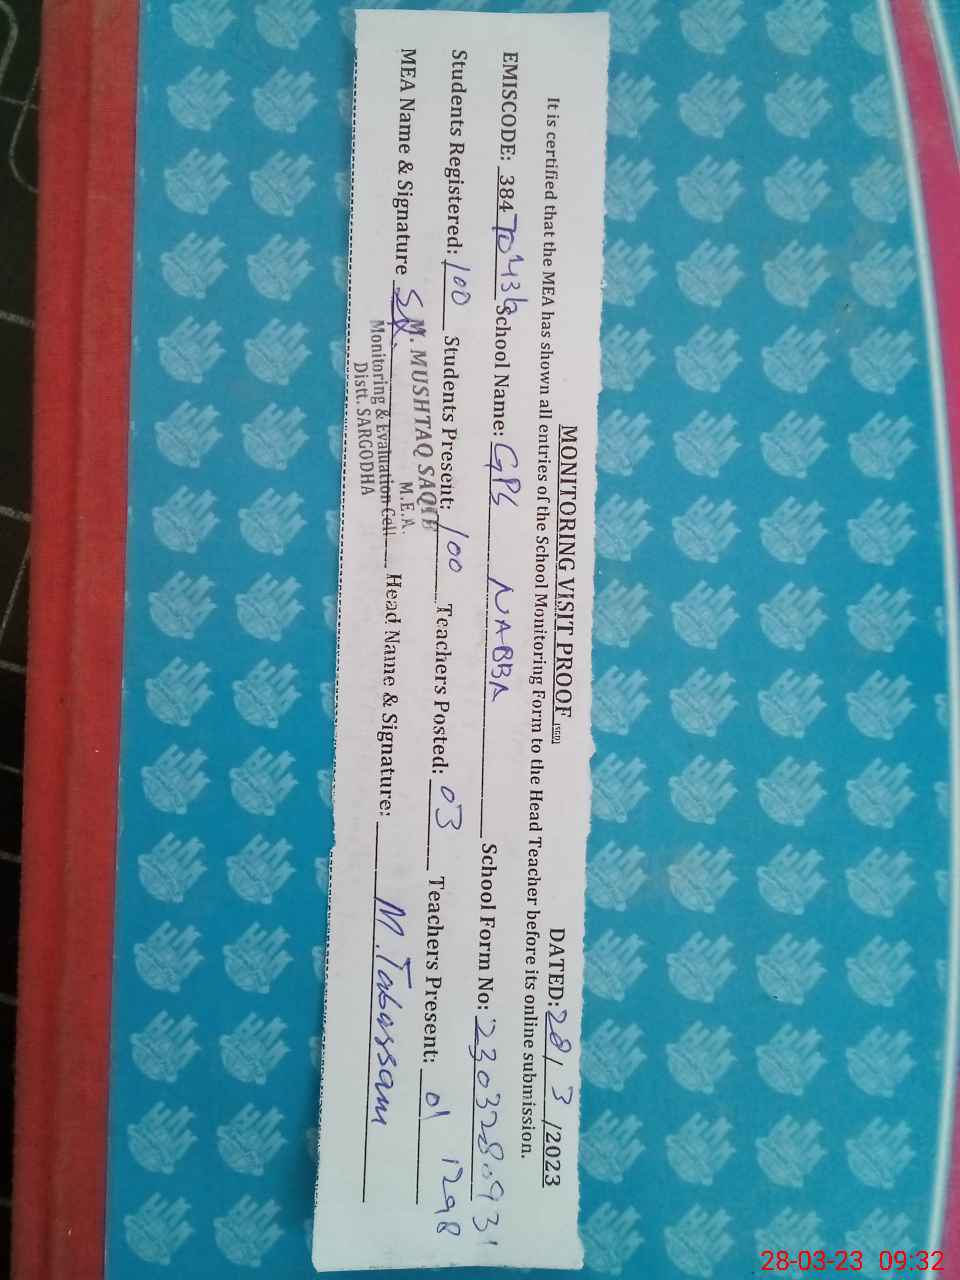 MONITORING VISIT PROOF (SGD) DATED: 28/3/2023
It is certified that the MEA has shown all entries of the School Monitoring Form to the Head Teacher before its online submission.
EMISCODE: 384 School Name: GPS NABBA School Form No: 2303280931
Students Registered: 100 Students Present: 100 Teachers Posted: 03 Teachers Present: 01 1298
MEA Name & Signature Head Name & Signature: M. Tabassam
M. MUSHTAQ SAQIB
M.E.A.
Monitoring & Evaluation Cell
Distt. SARGODHA
28-03-23 09:32